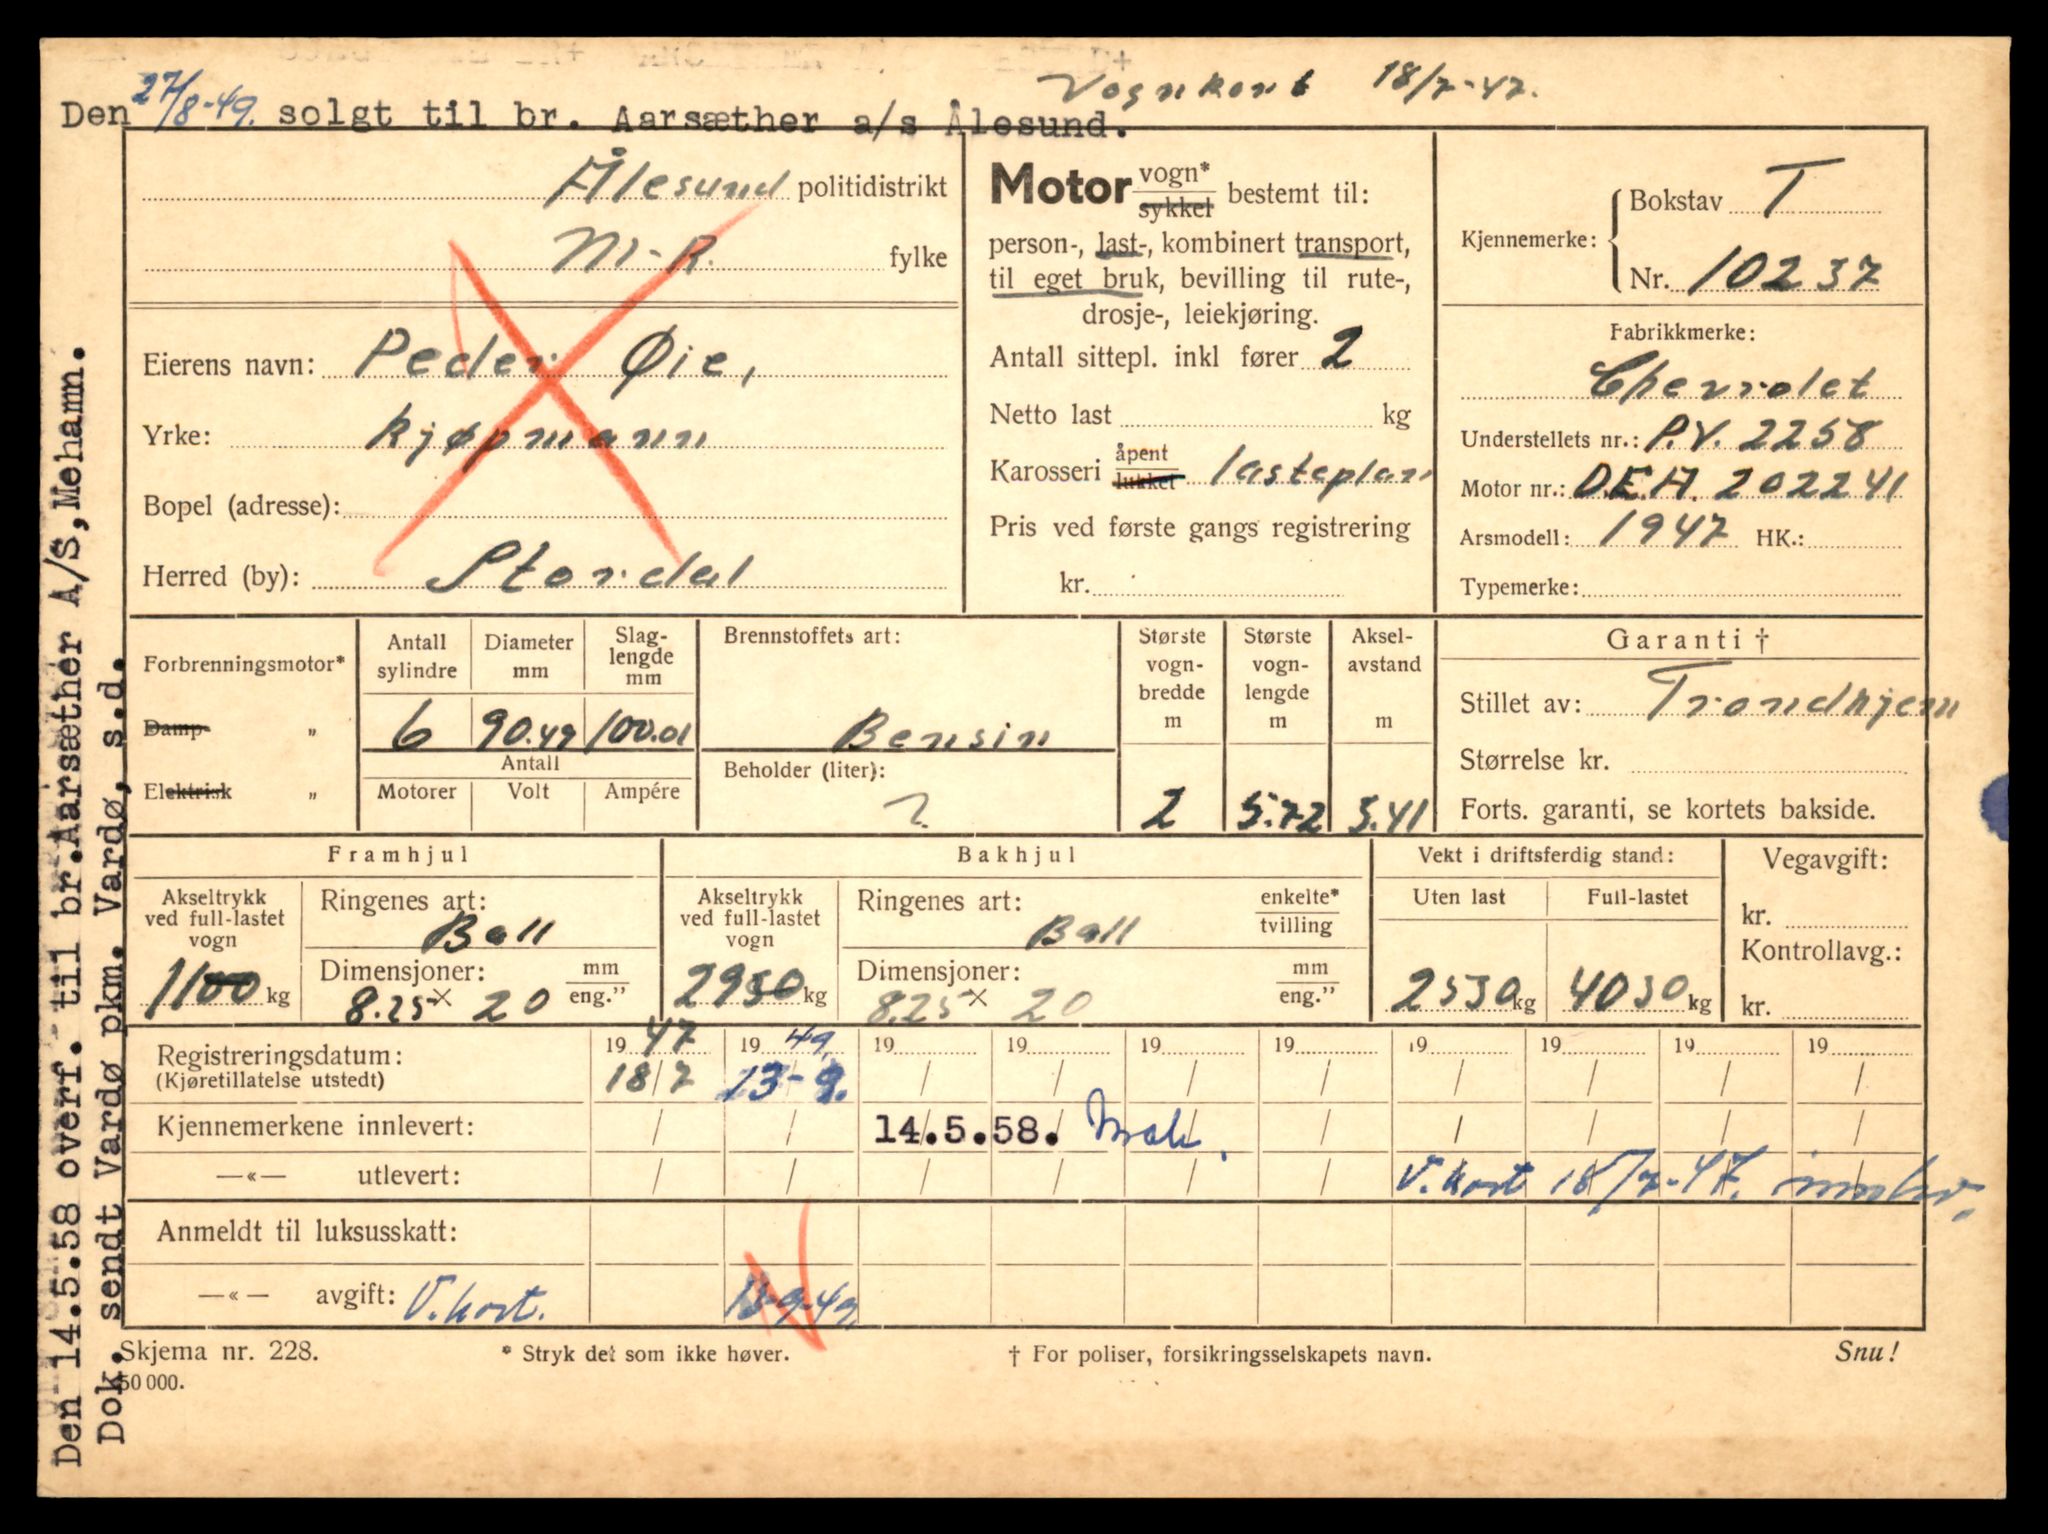 Vognkort 18/7-47.
Den 27/8-49. solgt til br. Aarsæther a/s Ålesund.
Ålesund politidistrikt
M-R. fylke
Eierens navn: Peder Øie,
Yrke: kjøpmann
Bopel (adresse):
Herred (by): Stordal
Motor vogn* sykkel bestemt til:
person-, last-, kombinert transport,
til eget bruk, bevilling til rute-,
drosje-, leiekjøring.
Antall sittepl. inkl fører 2
Netto last kg
Karosseri åpent lukket lasteplan
Pris ved første gangs registrering
kr.
Kjennemerke: Bokstav T
Nr. 10237
Fabrikkmerke:
Chevrolet
Understellets nr.: P.V. 2258
Motor nr.: D.E.A. 202241
Arsmodell: 1947 HK.:
Typemerke:
Forbrenningsmotor*
Damp- „
Elektrisk „
Antall sylindre Diameter mm Slag-lengde mm
6 90.49 100.01
Antall
Motorer Volt Ampére
Brennstoffets art:
Bensin
Beholder (liter):
?
Største vogn-bredde m Største vogn-lengde m Aksel-avstand m
2 5.72 3.41
Garanti †
Stillet av: Trondhjem
Størrelse kr.
Forts. garanti, se kortets bakside.
Framhjul
Akseltrykk ved full-lastet vogn
1100 kg
Ringenes art:
Ball
Dimensjoner: mm eng."
8.25 x 20
Bakhjul
Akseltrykk ved full-lastet vogn
2950 kg
Ringenes art: enkelte* tvilling
Ball
Dimensjoner: mm eng."
8.25 x 20
Vekt i driftsferdig stand:
Uten last Full-lastet
2530 kg 4030 kg
Vegavgift:
kr.
Kontrollavg.:
kr.
Registreringsdatum: 1947 1949 19 19 19 19 19 19 19 19
(Kjøretillatelse utstedt) 18/7 13-9.
Kjennemerkene innlevert: 14.5.58.
—«— utlevert: V.kort 18/7-47. innlev.
Anmeldt til luksusskatt:
—«— avgift: V.kort. 13-9-49
Skjema nr. 228. * Stryk det som ikke høver. † For poliser, forsikringsselskapets navn. Snu!
50 000.
Den 14.5.58 overf. til br.Aarsæther A/S,Mehamn.
Dok. sendt Vardø pkm. Vardø, s.d.